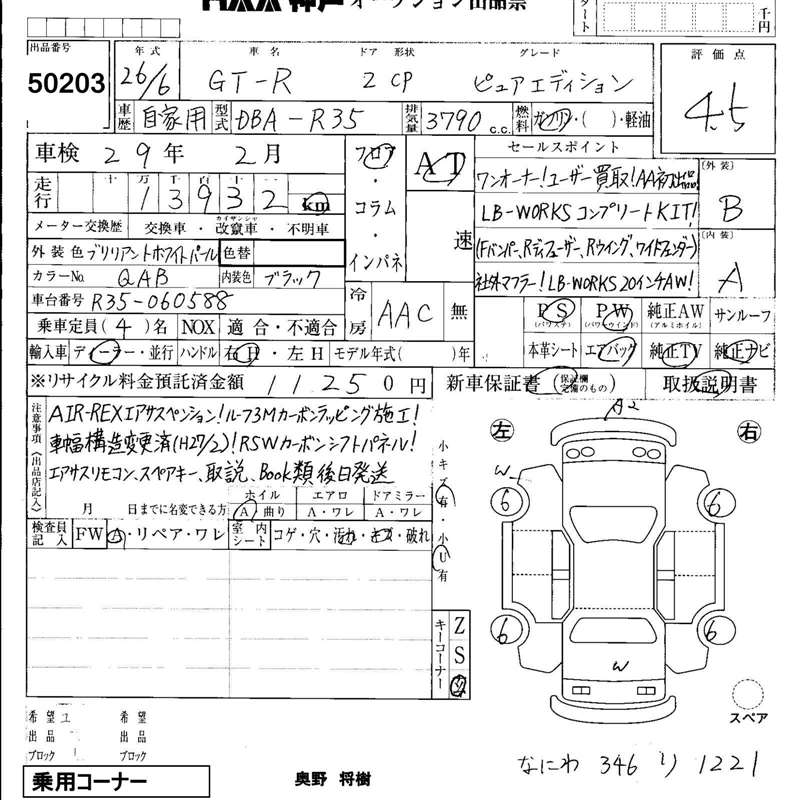 オークション出品票
千円
出品番号 50203
年式 26/6 車名 GT-R ドア 形状 2 CP グレード ピュアエディション
評価点 4.5
車歴 自家用 型式 DBA-R35 排気量 3790 c.c. 燃料 ガソリン・( )・軽油
車検 29年 2月 フロア・コラム・インパネ AT 速
セールスポイント
ワンオーナー!ユーザー買取!AA初出品
LB-WORKSコンプリートKIT!
(Fバンパー、Rディフューザー、Rウイング、ワイドフェンダー)
社外マフラー!LB-WORKS20インチAW!
〔外装〕 B
〔内装〕 A
走行 十万千百十 13932 km
メーター交換歴 交換車・改竄車・不明車
カイザンシャ
外装色 ブリリアントホワイトパール 色替
カラーNo. QAB 内装色 ブラック
車台番号 R35-060588
冷房 AAC 無
乗車定員 (4)名 NOX 適合・不適合
輸入車 ディーラー・並行 ハンドル 右H・左H モデル年式( )年
PS (パワステ) PW (パワーウインド) 純正AW (アルミホイル) サンルーフ
本革シート エアバッグ 純正TV 純正ナビ
※リサイクル料金預託済金額 11250円
新車保証書 (保証欄完備のもの) 取扱説明書
注意事項〈出品店記入〉
AIR-REXエアサスペンション!ルーフ3Mカーボンラッピング施工!
車幅構造変更済(H27/2)!RSWカーボンシフトパネル!
エアサスリモコン、スペアキー、取説、Book類後日発送
月 日までに名変できる方
ホイル エアロ ドアミラー
A・曲り A・ワレ A・ワレ
検査員記入 FW A・リペア・ワレ 室内シート コゲ・穴・汚れ・キズ・破れ
小キズ有・小U有
キーコーナー Z S
左 右
A2
W
6 6
6 6
W
スペア
希望 希望
出品 出品
ブロック ブロック
なにわ 346 り 1221
乗用コーナー
奥野 将樹